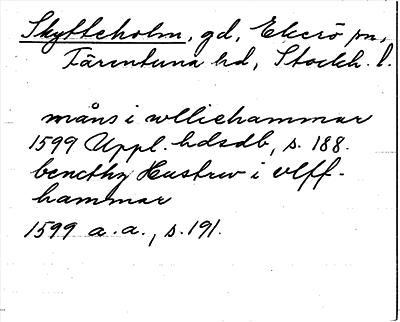 Skytteholm, gd, Ekerö sn,
Färentuna hd, Stockh. l.
måns i vlliehammar
1599 Uppl. hdsdb, s. 188.
bencthz Hustrw i vlff-
hammar
1599 a.a., s. 191.